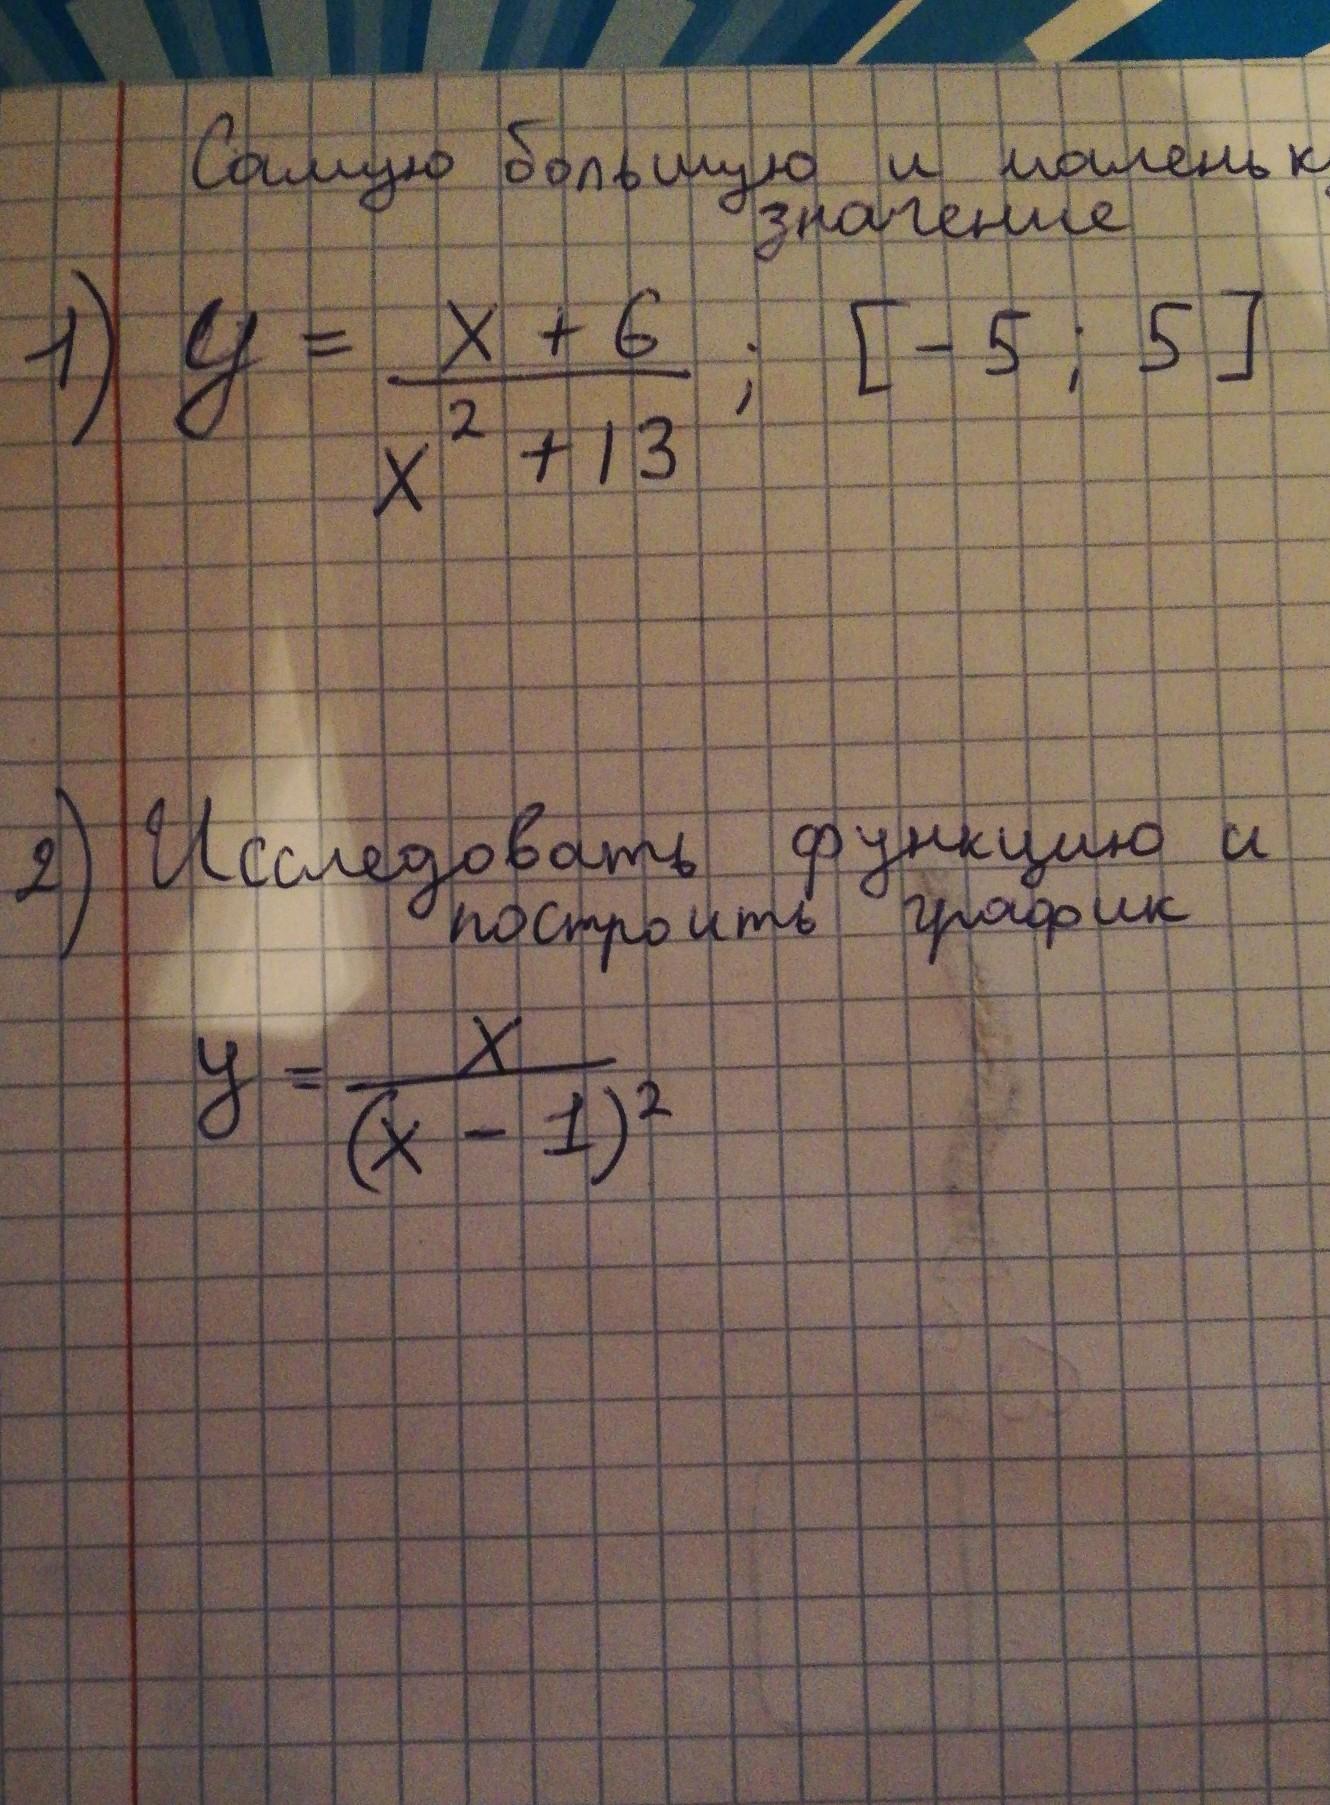 Самую большую и маленьку
значение
1) y = x + 6 / x² + 13 ; [-5; 5]
2) Исследовать функцию и
построить график
y = x / (x - 1)²